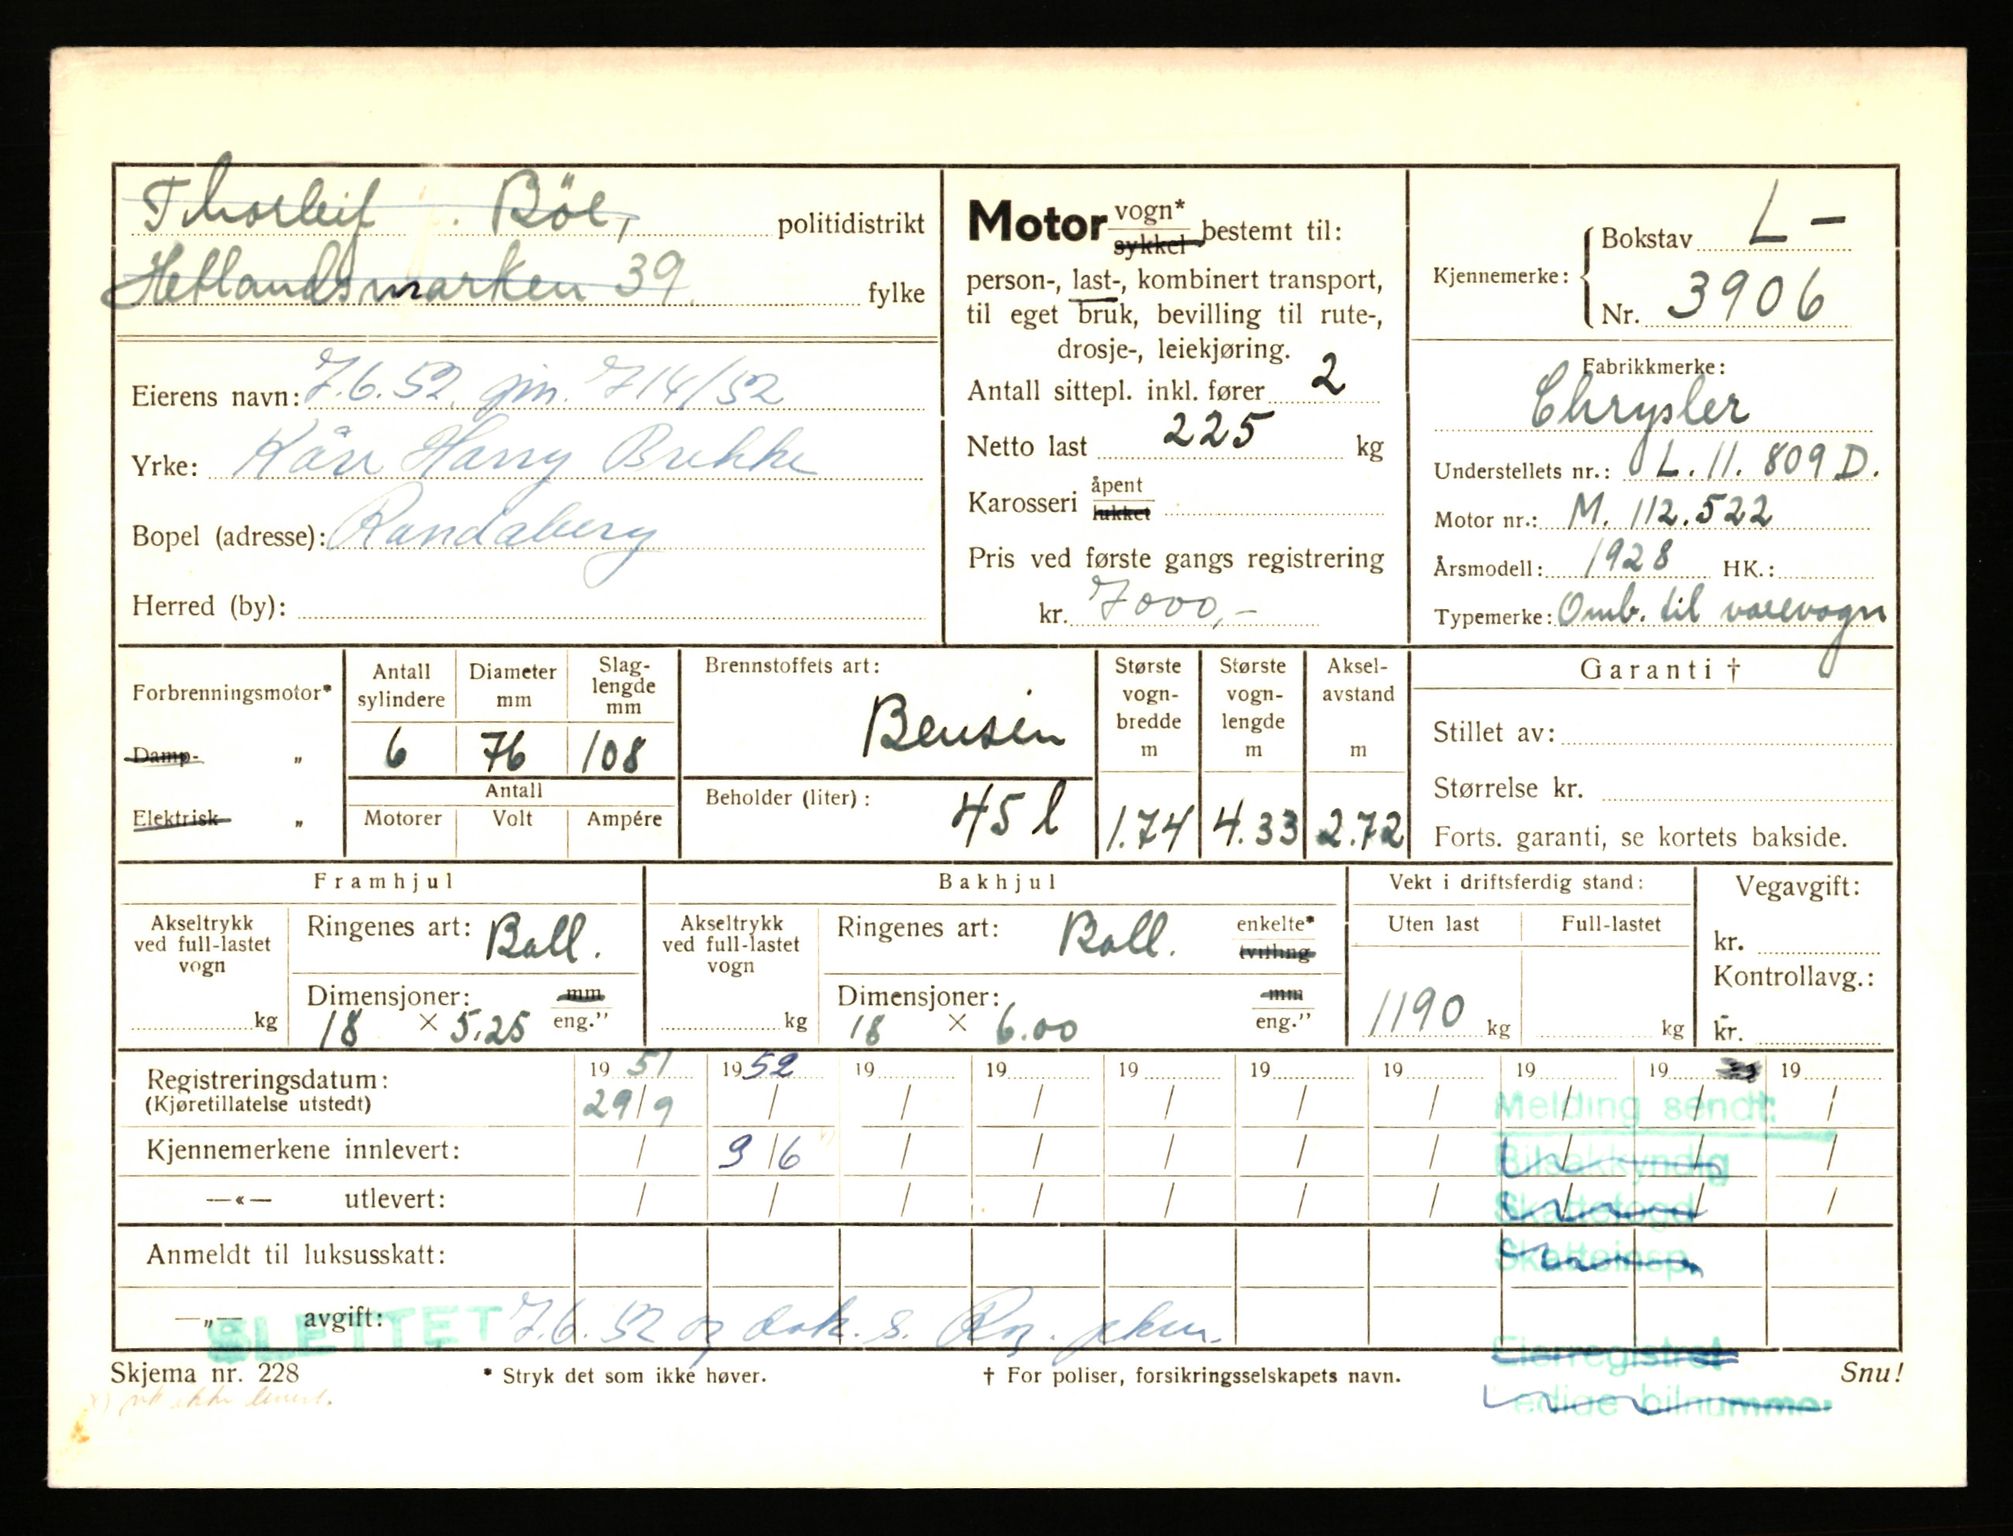 Thorleif Böe, politidistrikt
Hetlandsmarken 39 fylke
Eierens navn: 7.6.52. jnr. 714/52
Yrke: Kåre Harry Brekke
Bopel (adresse): Randaberg
Herred (by):
Motor vogn* sykkel bestemt til:
person-, last-, kombinert transport,
til eget bruk, bevilling til rute-,
drosje-, leiekjøring.
Antall sittepl. inkl. fører 2
Netto last 225 kg
Karosseri åpent lukket
Pris ved første gangs registrering
kr. 7000,-
Kjennemerke: Bokstav L-
Nr. 3906
Fabrikkmerke:
Chrysler
Understellets nr.: L.11.809D.
Motor nr.: M. 112.522
Årsmodell: 1928 HK.:
Typemerke: Omb. til varevogn
Forbrenningsmotor*
Damp- „
Elektrisk „
Antall sylindere Diameter mm Slag-lengde mm
6 76 108
Antall
Motorer Volt Ampére
Brennstoffets art:
Bensin
Beholder (liter): 45 l
Største vogn-bredde m 1.74
Største vogn-lengde m 4.33
Aksel-avstand m 2.72
Garanti †
Stillet av:
Størrelse kr.
Forts. garanti, se kortets bakside.
Framhjul
Akseltrykk ved full-lastet vogn kg
Ringenes art: Ball.
Dimensjoner: mm
18 × 5.25 eng."
Bakhjul
Akseltrykk ved full-lastet vogn kg
Ringenes art: Ball. enkelte* tvilling
Dimensjoner: mm
18 × 6.00 eng."
Vekt i driftsferdig stand:
Uten last Full-lastet
1190 kg kg
Vegavgift:
kr.
Kontrollavg.:
kr.
Registreringsdatum: 19 51 19 52 19 19 19 19 19 19 19 19
(Kjøretillatelse utstedt) 29/9 / / / / / / / / /
Melding sendt:
Kjennemerkene innlevert: / 9/6 / / / / / / / /
Bilsakkyndig
—«— utlevert: / / / / / / / / / /
Skattefogd
Anmeldt til luksusskatt:
Skatteinsp.
—„— avgift:
SLETTET 7.6.52 og dok. s. Rog.
Eierregistret
Skjema nr. 228 * Stryk det som ikke høver. † For poliser, forsikringsselskapets navn. Snu!
Ledige bilnummer